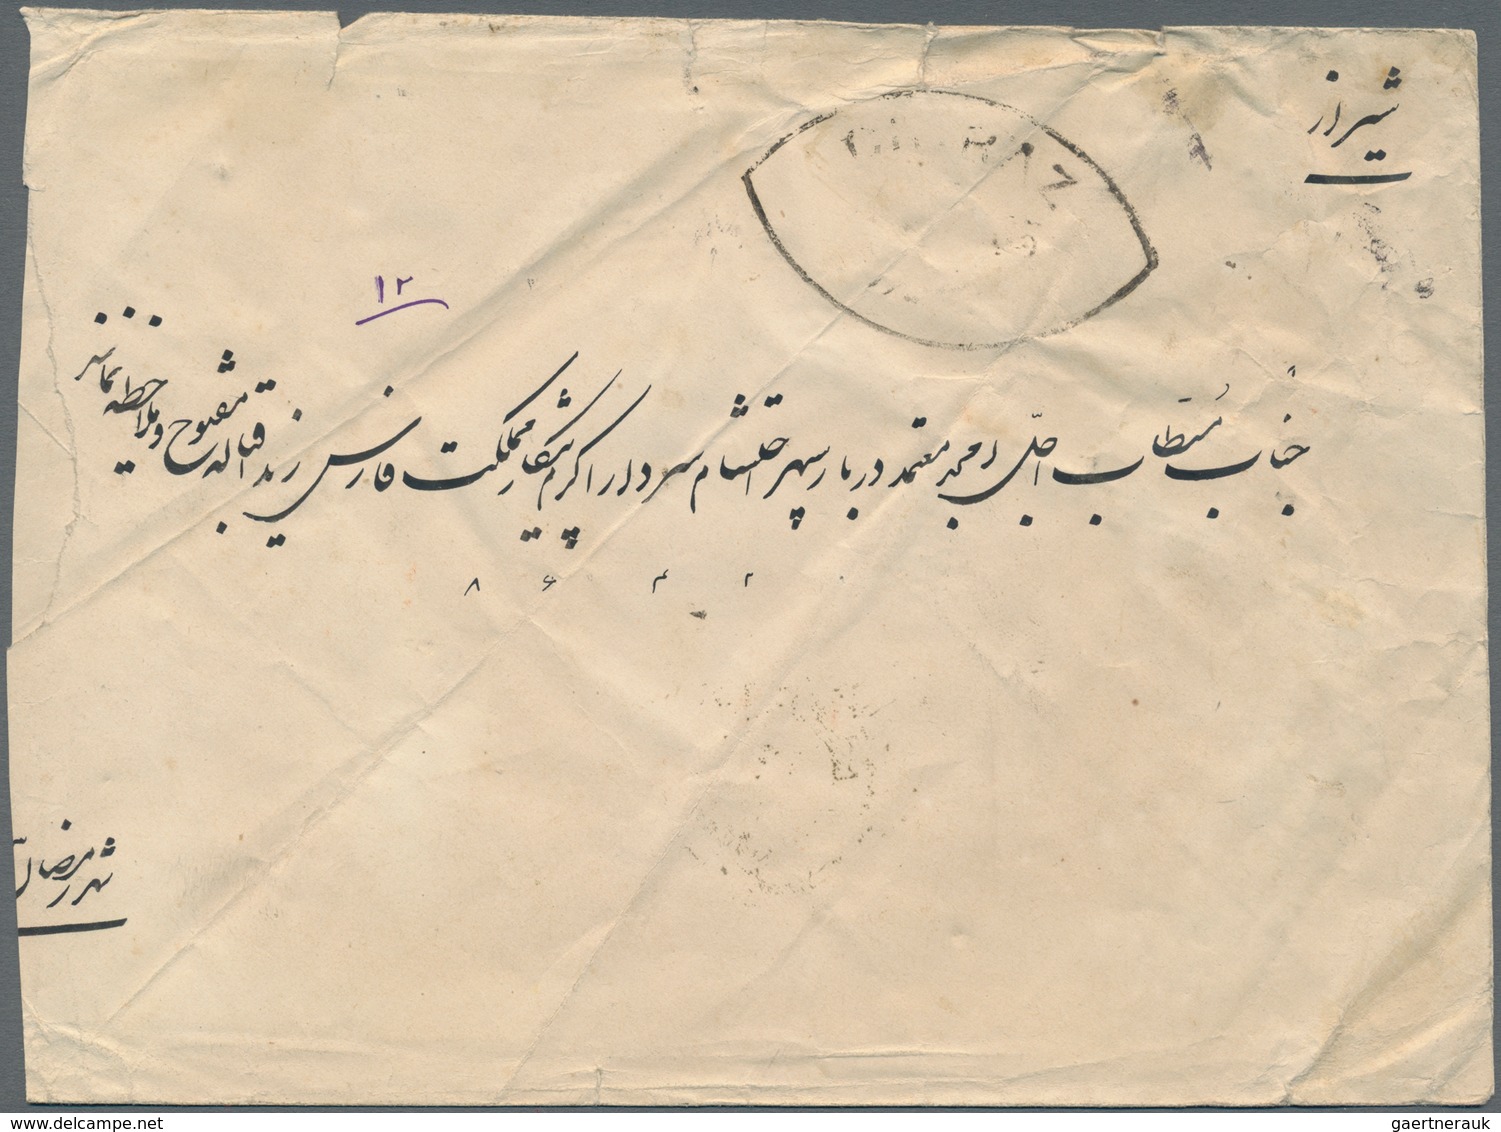 شیراز
CHIRAZ
۱۲
جناب مستطاب اجل امجد معتمد دربار سپهر احتشام سردار اکرم پیشکار مملکت فارس زید اقباله مفتوح و ملاحظه نمایند
۲ ۴ ۶ ۸
شهر رمضان
www.delcampe.net
gaertnerauk